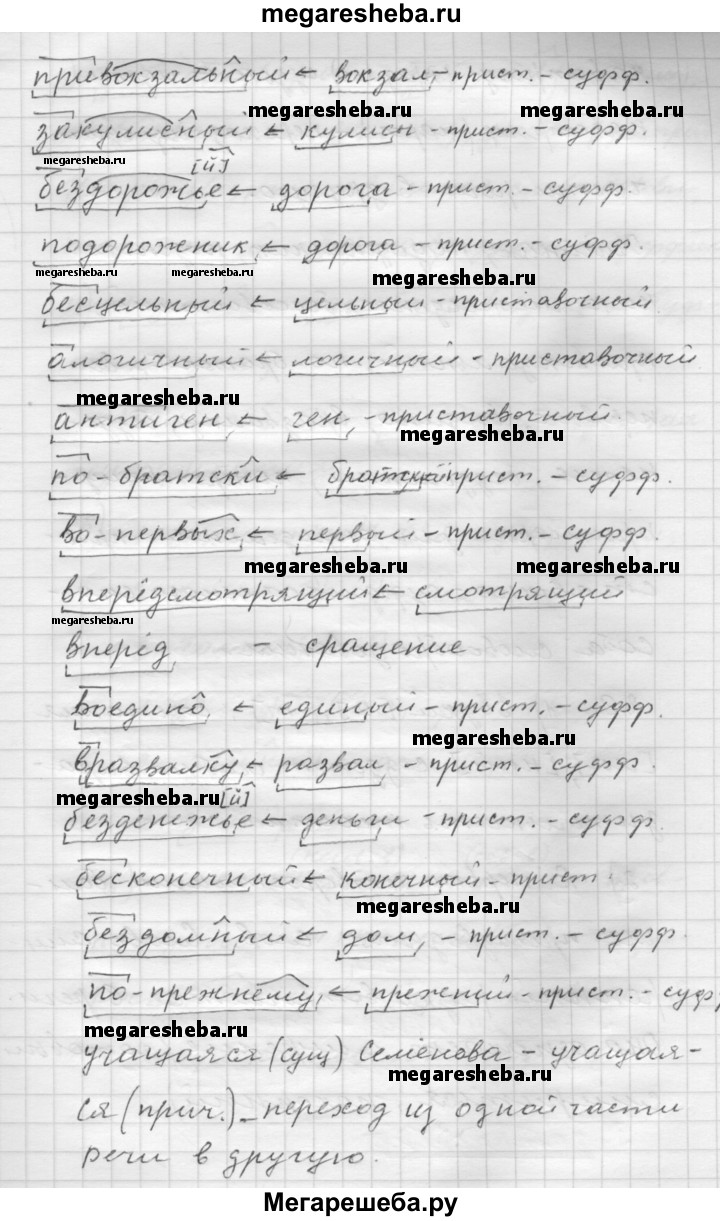 megaresheba.ru
привокзальный ← вокзал – прист. – суфф.
megaresheba.ru megaresheba.ru
закулисный ← кулисы – прист. – суфф.
megaresheba.ru [й]
бездорожье ← дорога – прист. – суфф.
подорожник ← дорога – прист. – суфф.
megaresheba.ru megaresheba.ru megaresheba.ru
бесцельный ← цельный – приставочный
алогичный ← логичный – приставочный
megaresheba.ru
антиген ← ген – приставочный
megaresheba.ru
по-братски ← братский – прист. – суфф.
во-первых ← первый – прист. – суфф.
megaresheba.ru megaresheba.ru
вперёдсмотрящий ← смотрящий
megaresheba.ru
вперёд – сращение
воедино ← единый – прист. – суфф.
megaresheba.ru
вразвалку ← развал – прист. – суфф.
megaresheba.ru [й]
безденежье ← деньги – прист. – суфф.
бесконечный ← конечный – прист.
megaresheba.ru
бездомный ← дом – прист. – суфф.
по-прежнему ← прежний – прист. – суфф
megaresheba.ru
учащаяся (сущ) Семёнова – учащая-
megaresheba.ru
ся (прич.) – переход из одной части
речи в другую.
Мегарешеба.ру